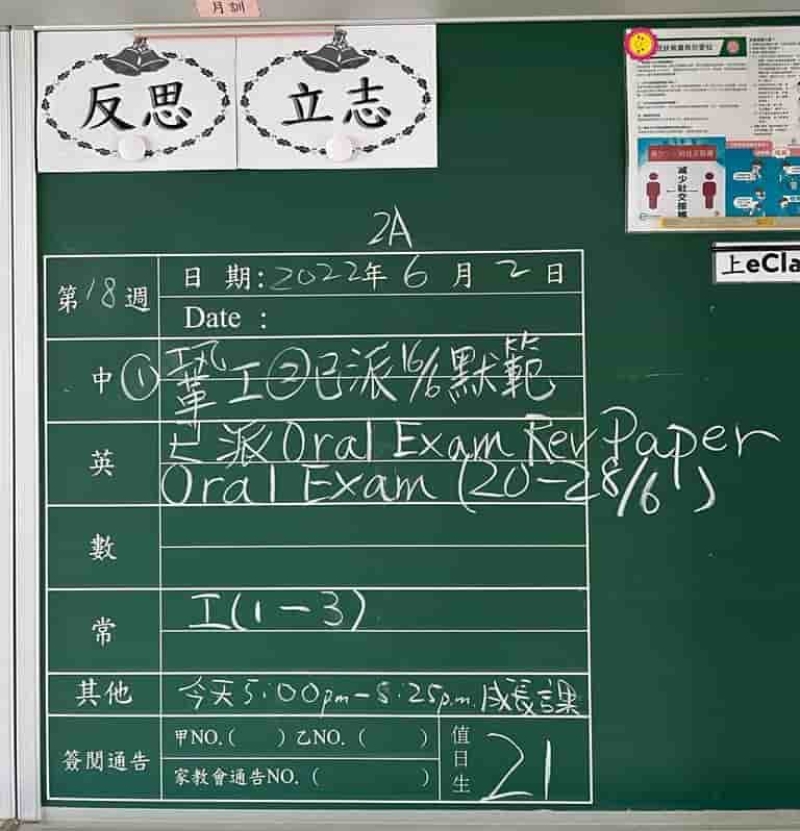 月訓
反思 立志
減少社交接觸
上eCla
2A
第18週
日期:2022年6月2日
Date :
中 ① 工②已派16/6默範
英 已派Oral Exam Rev Paper
Oral Exam (20-28/6)
數
常 工(1-3)
其他 今天5:00pm-5:25p.m.成長課
簽閱通告 甲NO.( ) 乙NO.( )
家教會通告NO.( )
值日生 21